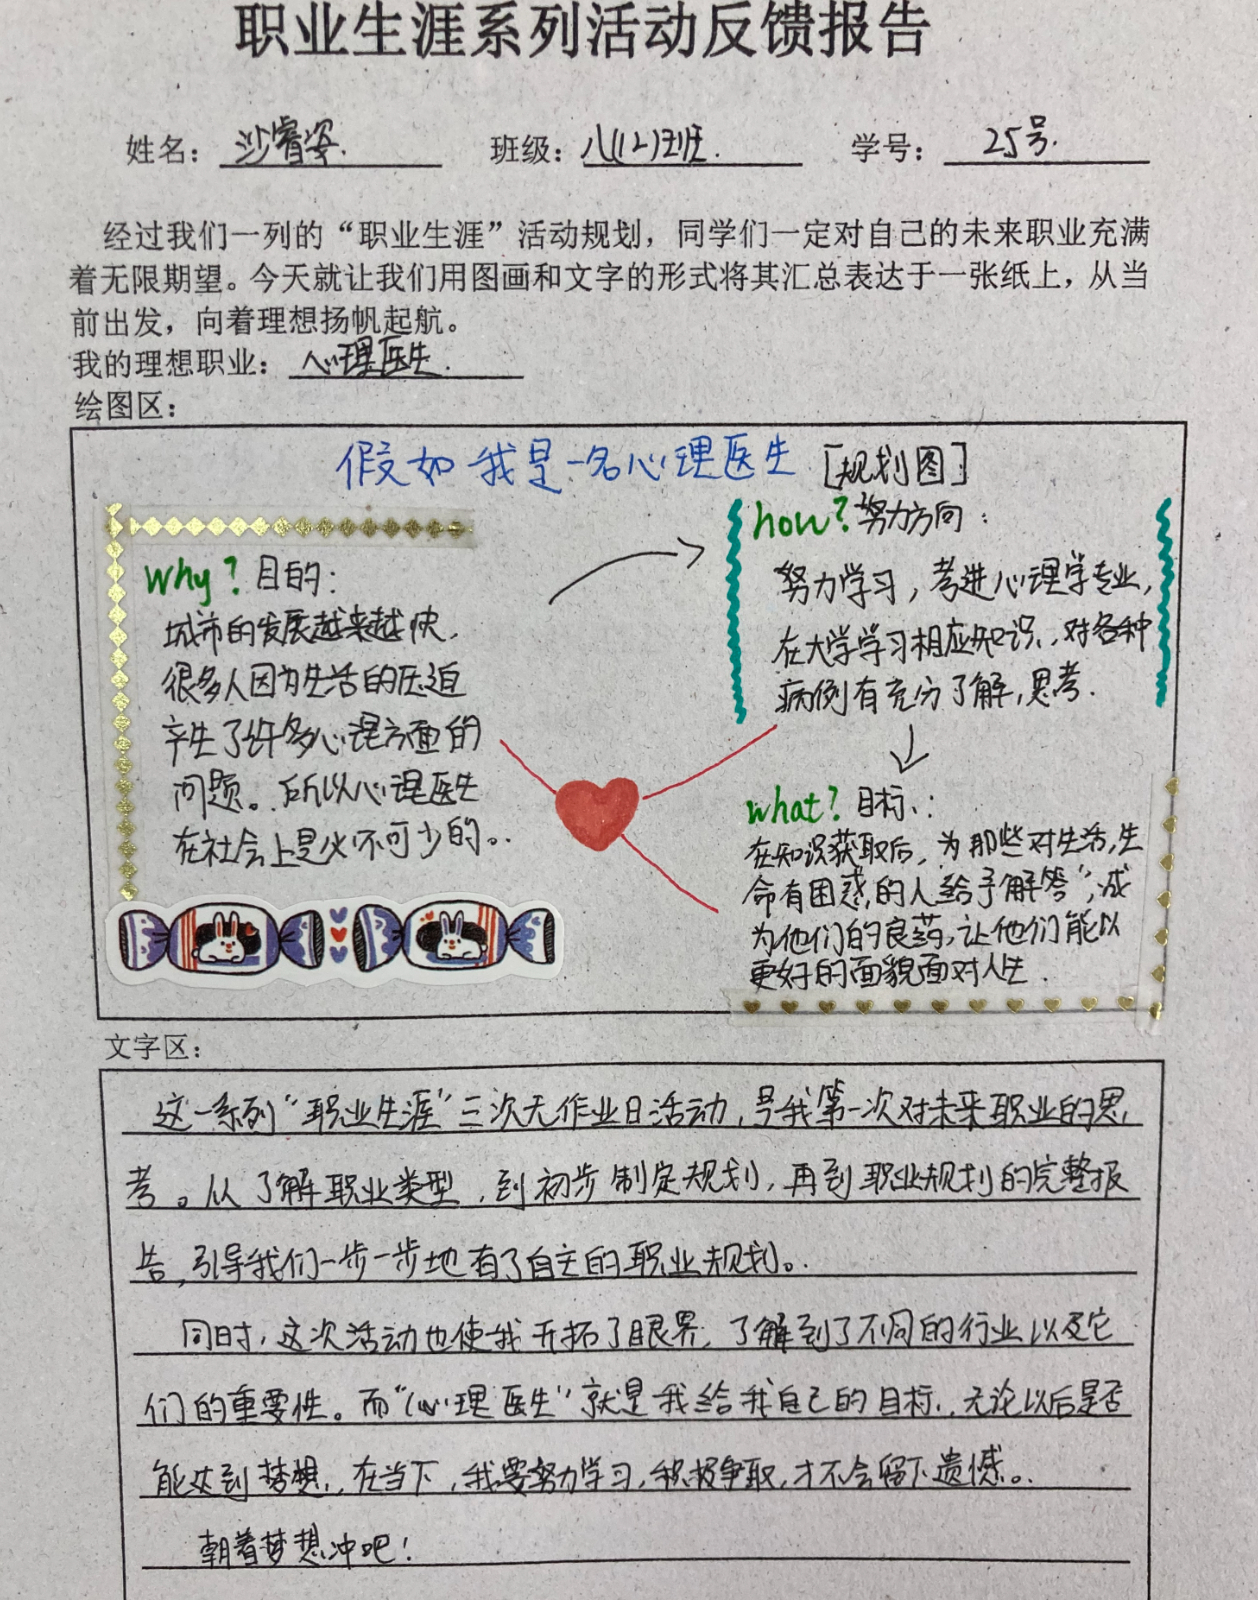 职业生涯系列活动反馈报告
姓名：沙睿姿. 班级：八(12)班. 学号：25号.
经过我们一列的“职业生涯”活动规划，同学们一定对自己的未来职业充满
着无限期望。今天就让我们用图画和文字的形式将其汇总表达于一张纸上，从当
前出发，向着理想扬帆起航。
我的理想职业：心理医生.
绘图区：
假如我是一名心理医生 [规划图]
why? 目的：
城市的发展越来越快，
很多人因为生活的压迫
产生了许多心理方面的
问题。所以心理医生
在社会上是必不可少的。
how? 努力方向：
努力学习，考进心理学专业，
在大学学习相应知识，对各种
病例有充分了解，思考.
what? 目标：
在知识获取后，为那些对生活，生
命有困惑的人给予“解答”，成
为他们的良药，让他们能以
更好的面貌面对人生.
文字区：
这一系列“职业生涯”三次无作业日活动，是我第一次对未来职业的思
考。从了解职业类型，到初步制定规划，再到职业规划的完整报
告，引导我们一步一步地有了自主的职业规划。
同时，这次活动也使我开拓了眼界，了解到了不同的行业以及它
们的重要性。而“心理医生”就是我给我自己的目标，无论以后是否
能达到梦想，在当下，我要努力学习，积极争取，才不会留下遗憾。
朝着梦想冲吧！